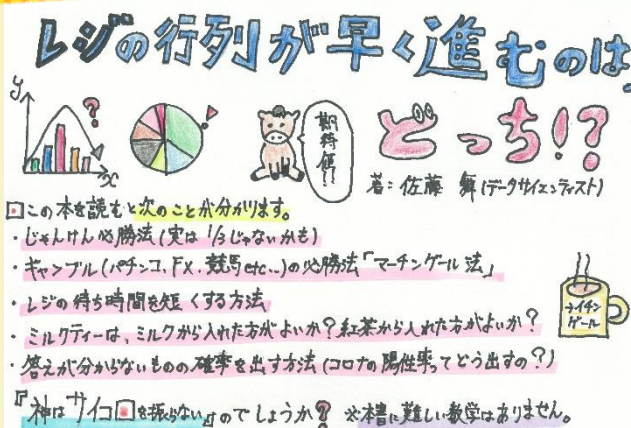 レジの行列が早く進むのは、
どっち!?
y
?
x
!
期待値!!
著:佐藤 舞(データサイエンティスト)
この本を読むと次のことが分かります。
・じゃんけん必勝法(実は1/3じゃないかも)
・ギャンブル(パチンコ、FX、競馬etc...)の必勝法「マーチンゲール法」
・レジの待ち時間を短くする方法
・ミルクティーは、ミルクから入れた方がよいか?紅茶から入れた方がよいか?
ナイチン
ゲール
・答えが分からないものの確率を出す方法(コロナの陽性率ってどう出すの?)
『神はサイコロを振らない』のでしょうか? ※本書に難しい数学はありません。